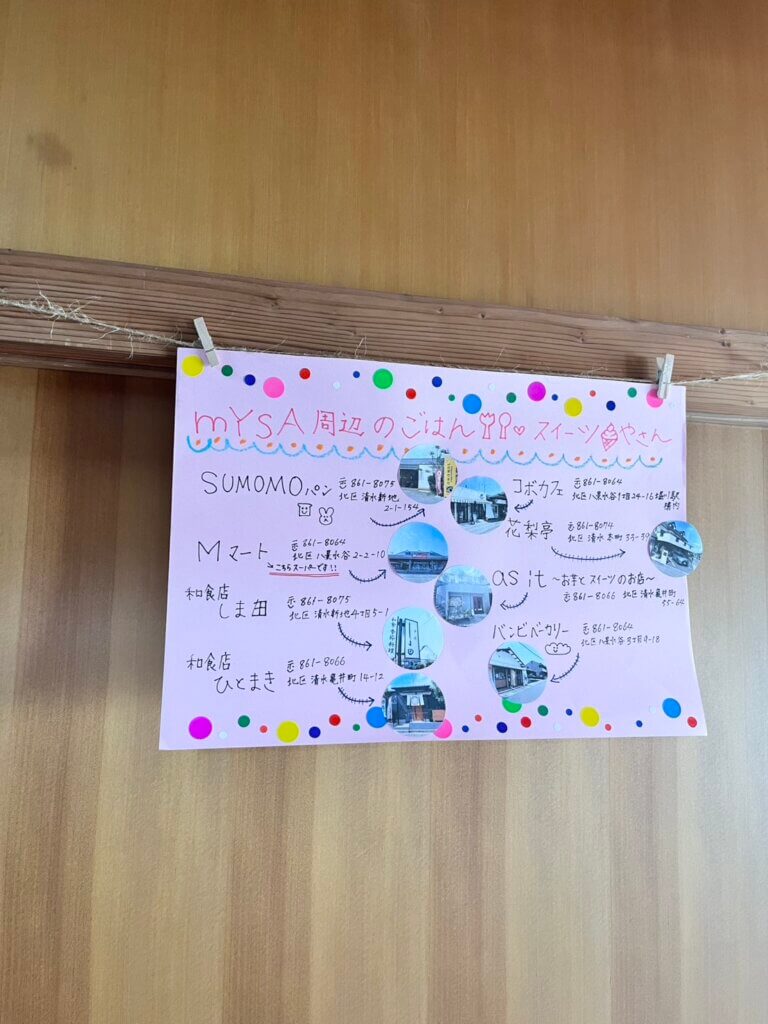 mYsA 周辺 のごはん スイーツ やさん
SUMOMOパン
〒861-8075
北区 清水新地
2-1-154
Mマート
〒861-8064
北区 八景水谷 2-2-10
こちらスーパーです!!
和食店
しま田
〒861-8075
北区 清水新地 4丁目 5-1
和食店
ひとまき
〒861-8066
北区 清水亀井町 14-12
コボカフェ
〒861-8064
北区 八景水谷 1丁目 24-16
構内
花梨亭
〒861-8074
北区 清水 本町 33-39
as it ～お芋と スイーツ のお店～
〒861-8066 北区 清水亀井町
35-64
バンビベーカリー
〒861-8064
北区 八景水谷 3丁目 9-18